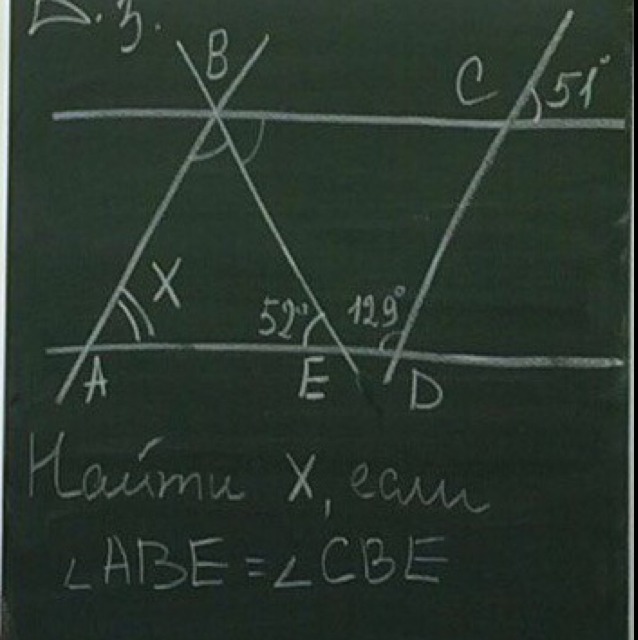 Д.з.
B
C 51°
X
52° 129°
A E D
Найти X, если
∠ABE = ∠CBE